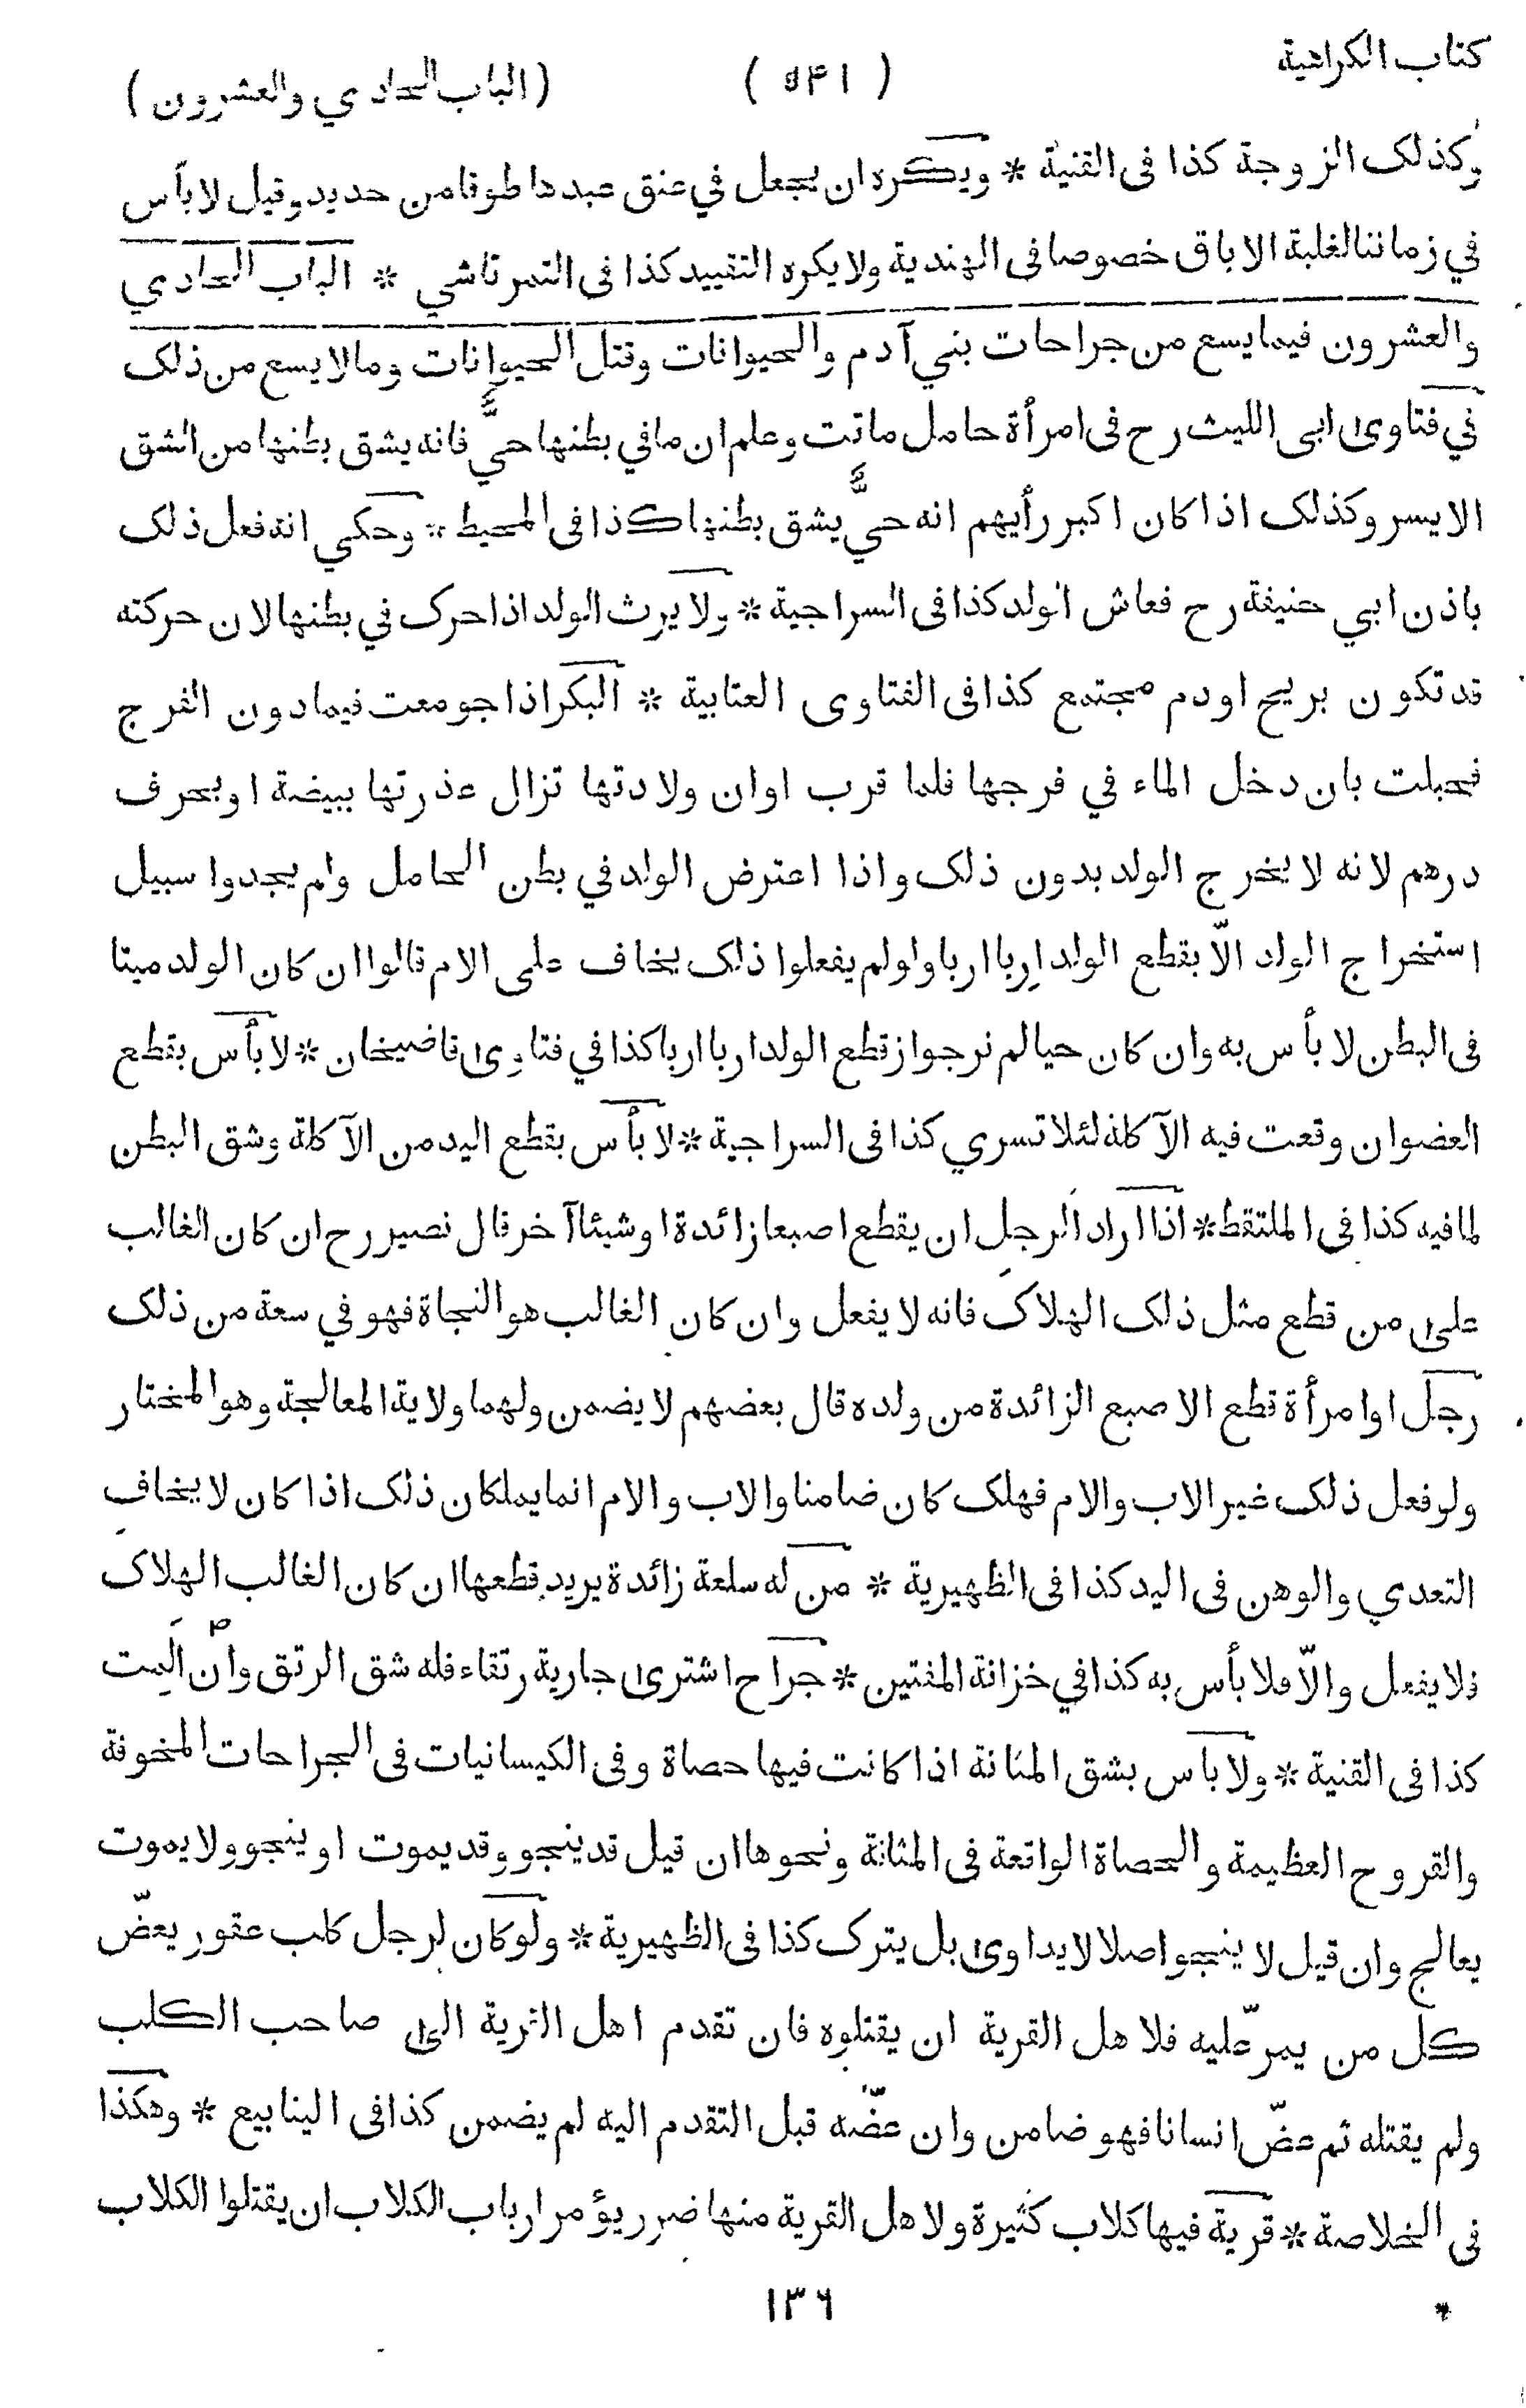 كتاب الكراهية
( ٥٤١ )
( الباب الحادي والعشرون )
وكذلك الزوجة كذا فى القنية * ويكره ان يجعل في عنق عبده طوقا من حديد وقيل لا بأس
في زماننا لغلبة الاباق خصوصا فى الهندية ولا يكره التقييد كذا فى التمرتاشي * الباب الحادي
والعشرون فيما يسع من جراحات بني آدم والحيوانات وقتل الحيوانات وما لا يسع من ذلك
في فتاوى ابى الليث رح فى امرأة حامل ماتت وعلم ان ما في بطنها حيّ فانه يشق بطنها من الشق
الايسر وكذلك اذا كان اكبر رأيهم انه حيّ يشق بطنها كذا فى المحيط * وحكي انه فعل ذلك
باذن ابي حنيفة رح فعاش الولد كذا فى السراجية * ولا يرث الولد اذا حرك في بطنها لان حركته
قد تكون بريح او دم مجتمع كذا فى الفتاوى العتابية * البكر اذا جومعت فيما دون الفرج
فحبلت بان دخل الماء في فرجها فلما قرب اوان ولادتها تزال عذرتها ببيضة او بحرف
درهم لانه لا يخرج الولد بدون ذلك واذا اعترض الولد في بطن الحامل ولم يجدوا سبيل
استخراج الولد الّا بقطع الولد اربا اربا ولو لم يفعلوا ذلك يخاف على الام قالوا ان كان الولد ميتا
فى البطن لا بأس به وان كان حيا لم نر جواز قطع الولد اربا اربا كذا في فتاوى قاضيخان * لا بأس بقطع
العضو ان وقعت فيه الآكلة لئلا تسري كذا فى السراجية * لا بأس بقطع اليد من الآكلة وشق البطن
لما فيه كذا فى الملتقط * اذا اراد الرجل ان يقطع اصبعا زائدة او شيئا آخر قال نصير رح ان كان الغالب
على من قطع مثل ذلك الهلاك فانه لا يفعل وان كان الغالب هو النجاة فهو في سعة من ذلك
رجل او امرأة قطع الاصبع الزائدة من ولده قال بعضهم لا يضمن ولهما ولاية المعالجة وهو المختار
ولو فعل ذلك غير الاب والام فهلك كان ضامنا والاب والام انما يملكان ذلك اذا كان لا يخاف
التعدي والوهن فى اليد كذا فى الظهيرية * من له سلعة زائدة يريد قطعها ان كان الغالب الهلاك
فلا يفعل والّا فلا بأس به كذا في خزانة المفتين * جراح اشترى جارية رتقاء فله شق الرتق وان المت
كذا فى القنية * ولا بأس بشق المثانة اذا كانت فيها حصاة وفى الكيسانيات فى الجراحات المخوفة
والقروح العظيمة والحصاة الواقعة فى المثانة ونحوها ان قيل قد ينجو وقد يموت او ينجو ولا يموت
يعالج وان قيل لا ينجو اصلا لا يداوى بل يترك كذا فى الظهيرية * ولو كان لرجل كلب عقور يعضّ
كل من يمرّ عليه فلاهل القرية ان يقتلوه فان تقدم اهل القرية الى صاحب الكلب
ولم يقتله ثم عضّ انسانا فهو ضامن وان عضّه قبل التقدم اليه لم يضمن كذا فى الينابيع * وهكذا
فى الخلاصة * قرية فيها كلاب كثيرة ولاهل القرية منها ضرر يؤمر ارباب الكلاب ان يقتلوا الكلاب
١٣٦
*